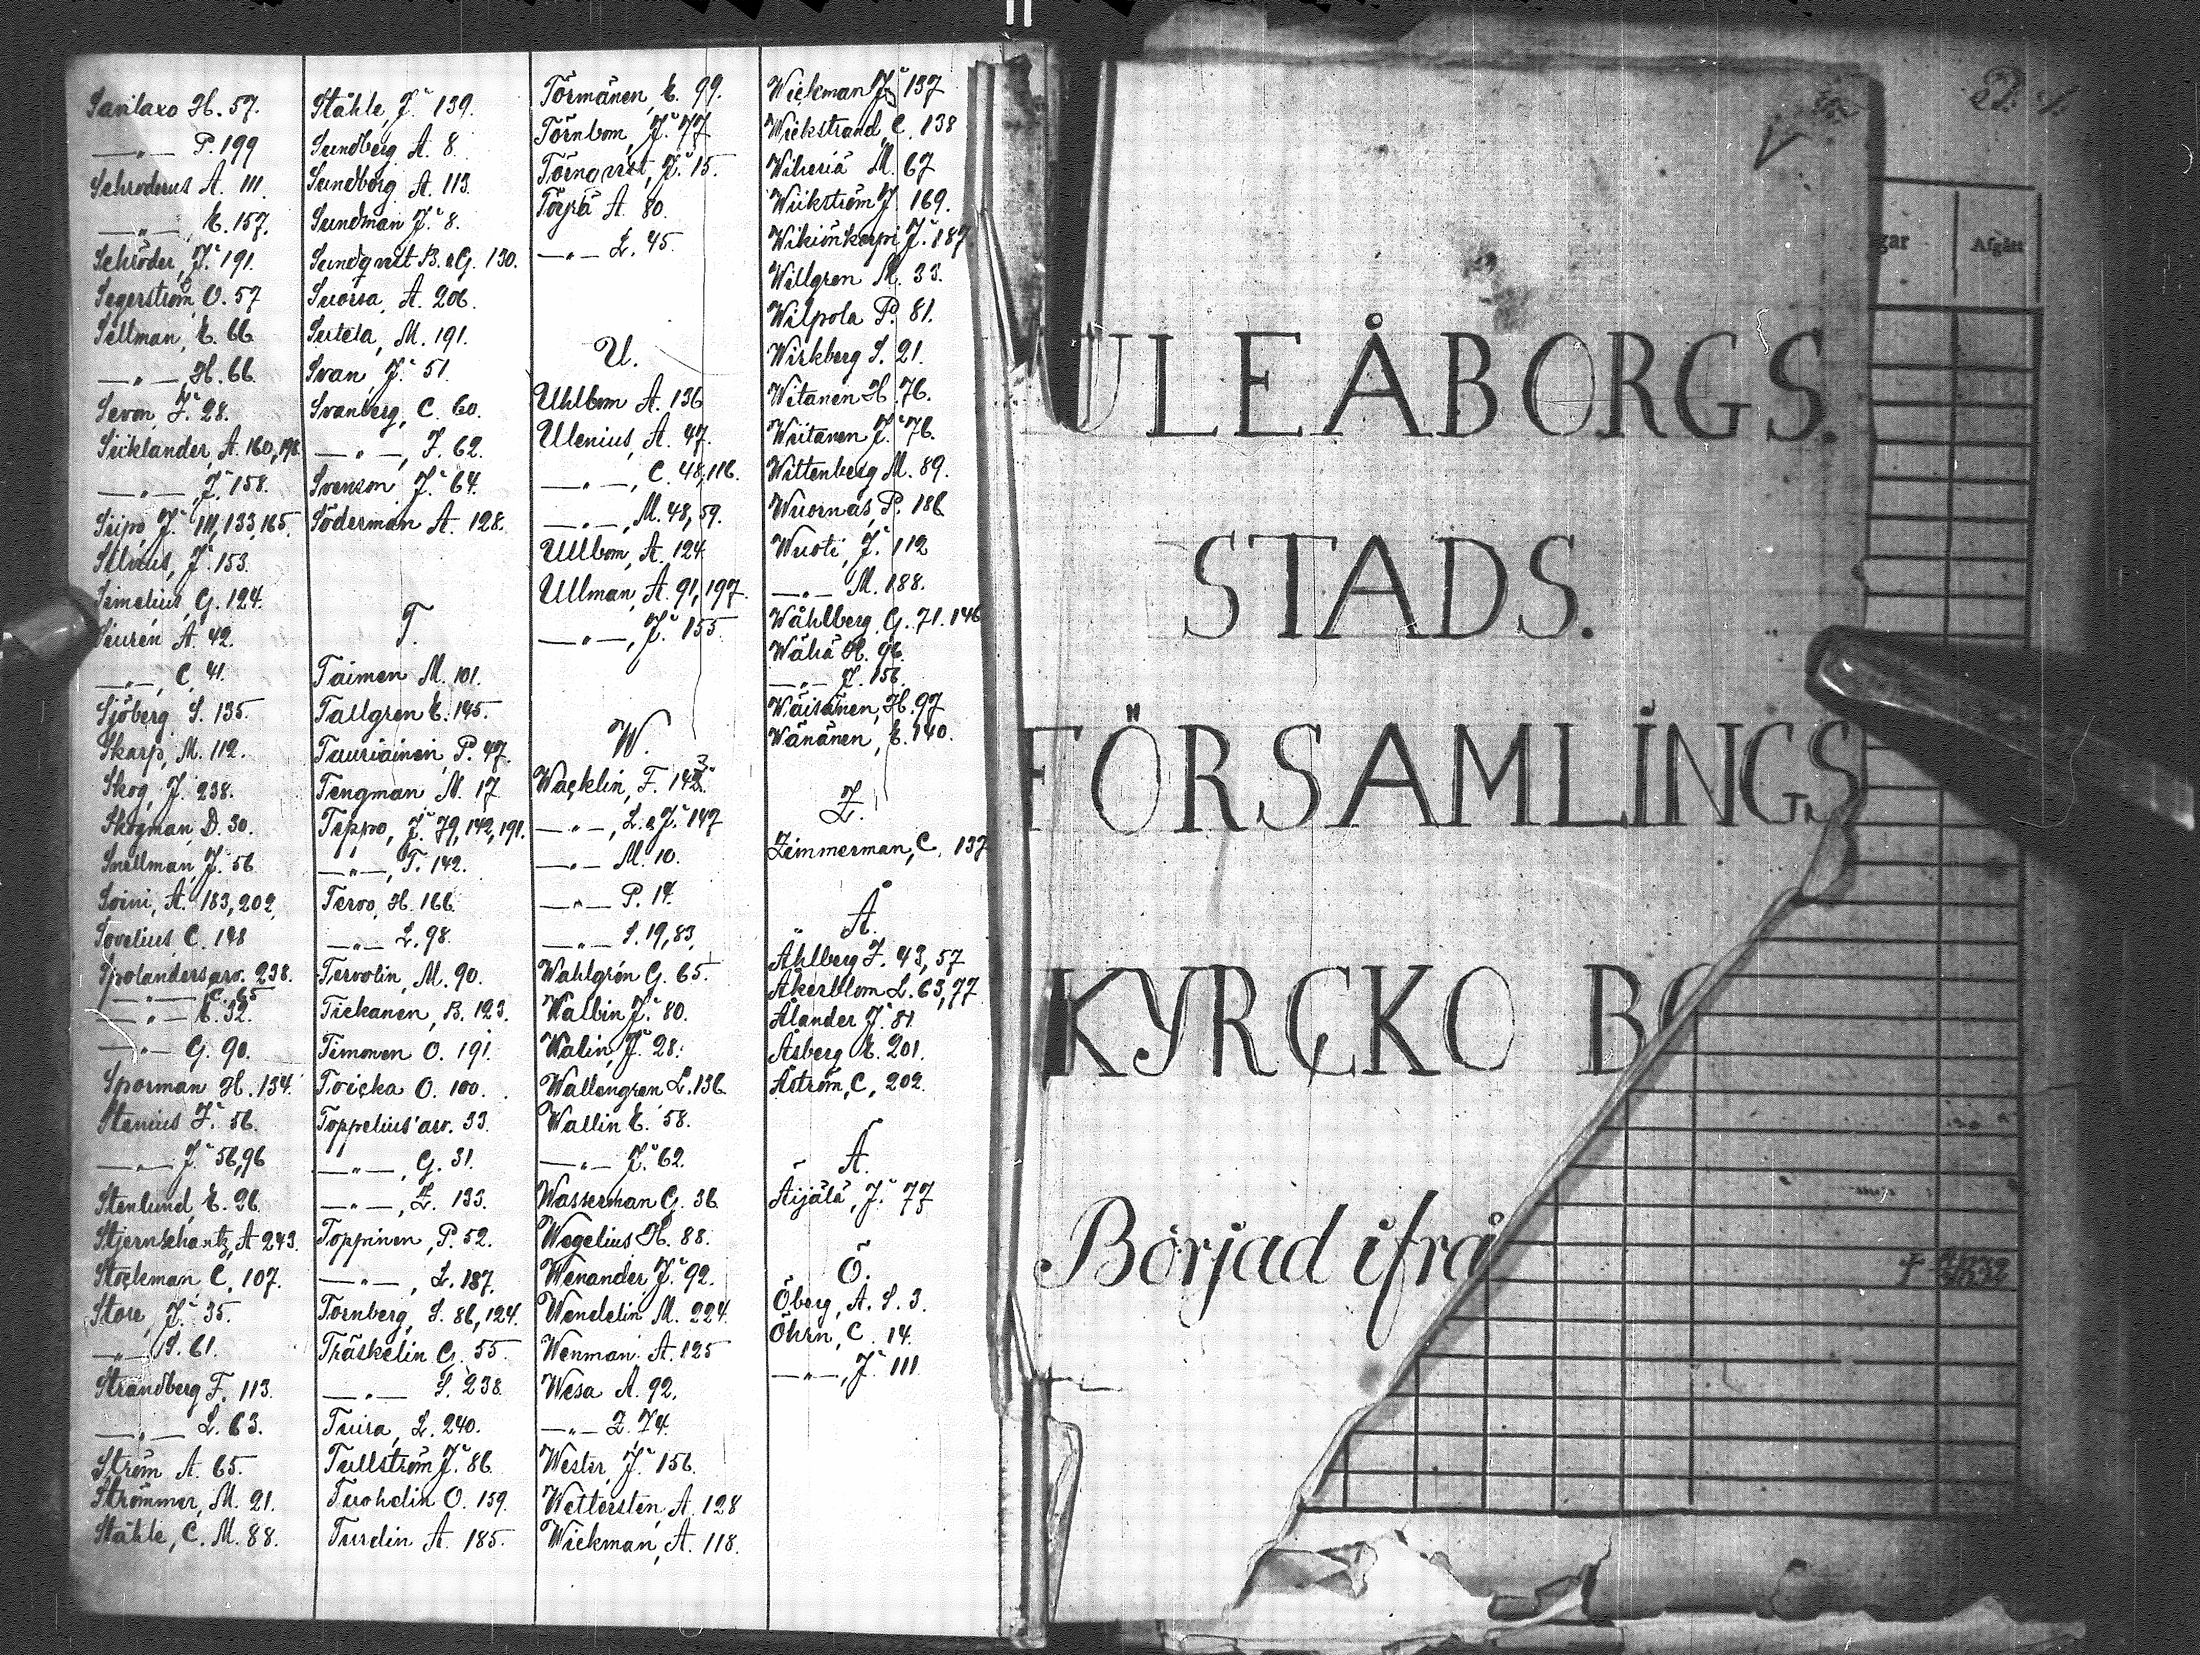 Sanilaxo H. 57.
—„— P. 199
Schroderus A. 111.
—„— E. 157.
Schröder, J. 191.
Segerström O. 57
Sellman, E. 66
—„—, H. 66.
Sevon, J. 28.
Sicklander, A. 160, 198.
—„—, J. 158.
Siipo, J. 111, 133, 165.
J. 153.
Simelius, G. 124.
Siuren A. 42.
—„—, C. 41.
Sjöberg S. 135.
Skarp, M. 112.
Skog, J. 238.
Skogman, D. 30.
Snellman, J. 56
Soini, A. 183, 202.
Sovelius C. 148
Spolanders arv. 238.
—„— C. 65
—„— E. 32.
—„— G. 90.
Sporman H. 134.
Stenius J. 56.
—„— J. 56, 96
Stenlund, E. 26.
Stjernschantz, A 243.
Stockman, C, 107.
Store, J. 35.
—„— S. 61.
Strandberg F. 113.
—„— L. 63.
Ström A. 65.
Strömmer, M. 21.
Ståhle, C. M. 88.
Ståhle, J. 139.
Sundberg A. 8.
Sundborg A. 113.
Sundman J. 8.
Sundqvist B. & G. 130.
Suorsa, A. 206.
Sutela, M. 191.
Svan, J. 51.
Svanberg, C. 60.
—„—, J. 62.
Svenson J. 64.
Söderman A. 128.
T.
Taimen M. 101.
Tallgren E. 145.
Tauriainen, P. 47.
Tengman N. 17.
Teppo, J. 79, 142, 191.
—„—, T. 142.
Tervo, H. 166.
—„— L. 98.
Tervolin, M. 90.
Tickanen, B. 123.
Timonen O. 191.
Toicka O. 100.
Toppelius' arv. 33.
—„—, G. 31.
—„—, Z. 133.
Toppinen, P. 52.
—„—, L. 187.
Tornberg, S. 86, 124.
Träskelin G. 55.
—„— S. 238.
Tuira, L. 240.
Tullström J. 86.
Tuohelin O. 159.
Turdin A. 185.
Törmänen, E. 99.
Törnbom, J. 77
Törnqvist, J. 15.
Törpä A. 80.
—„— L. 45.
U.
Uhlbom A. 136
Ulenius, A. 47.
—„—, C. 48, 116.
—„—, M. 48, 59.
Ullbom, A. 124
Ullman, A. 91, 197.
—„—, J. 155.
W.
Wacklin, F. 143
—„—, L. & J. 147
—„— M. 10.
—„— P. 17.
—„— S. 19, 83.
Wahlgrén G. 65.
Walbin J. 80.
Walin, J. 28.
Wallengren L. 136.
Wallin E. 58.
—„— J. 62.
Wasserman G. 36.
Wegelius H. 88.
Wenander J. 92.
Wendelin M. 224.
Wenman A. 125
Wesa A. 92.
—„— Z. 74.
Wester, J. 156.
Wettersten, A. 128
Wickman, A. 118.
Wickman J. 137
Wickstrand, C. 138
Wiheriä M. 67
Wiikström J. 169.
J. 187
Willgren M. 33.
Wilpola P. 81.
Wirkberg S. 21.
Witanen H. 76.
Wiitanen J. 76.
Wittenberg M. 89.
Wuornas, P. 186
Wuoti, J. 112
—„— M. 188.
Wåhlberg G. 71. 146
Wähä H. 96.
—„— J. 156.
Wäisänen, H. 97
Wänänen, E. 140.
Z.
Zimmerman, C. 137
Å.
Åhlberg J. 43, 57
Åkerblom L. 63, 77
Ålander J. 81
Åsberg E. 201.
Åström, C, 202.
Ä.
Äijälä, J. 77
Ö.
Öberg, A. S. 3.
Öhrn, C. 14.
—„—, J. 111
2.
gar
Afgått
ULEÅBORGS.
STADS.
FÖRSAMLINGS
KYRCKO BO
Börjad ifrå